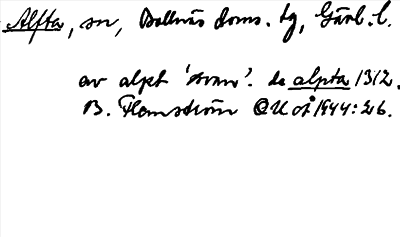 Alfta, sn, Bollnäs doms. tg, Gävl. l.
av alpt 'svan'. de alpta 1312.
B. Flemström OUÅ 1944: 26.